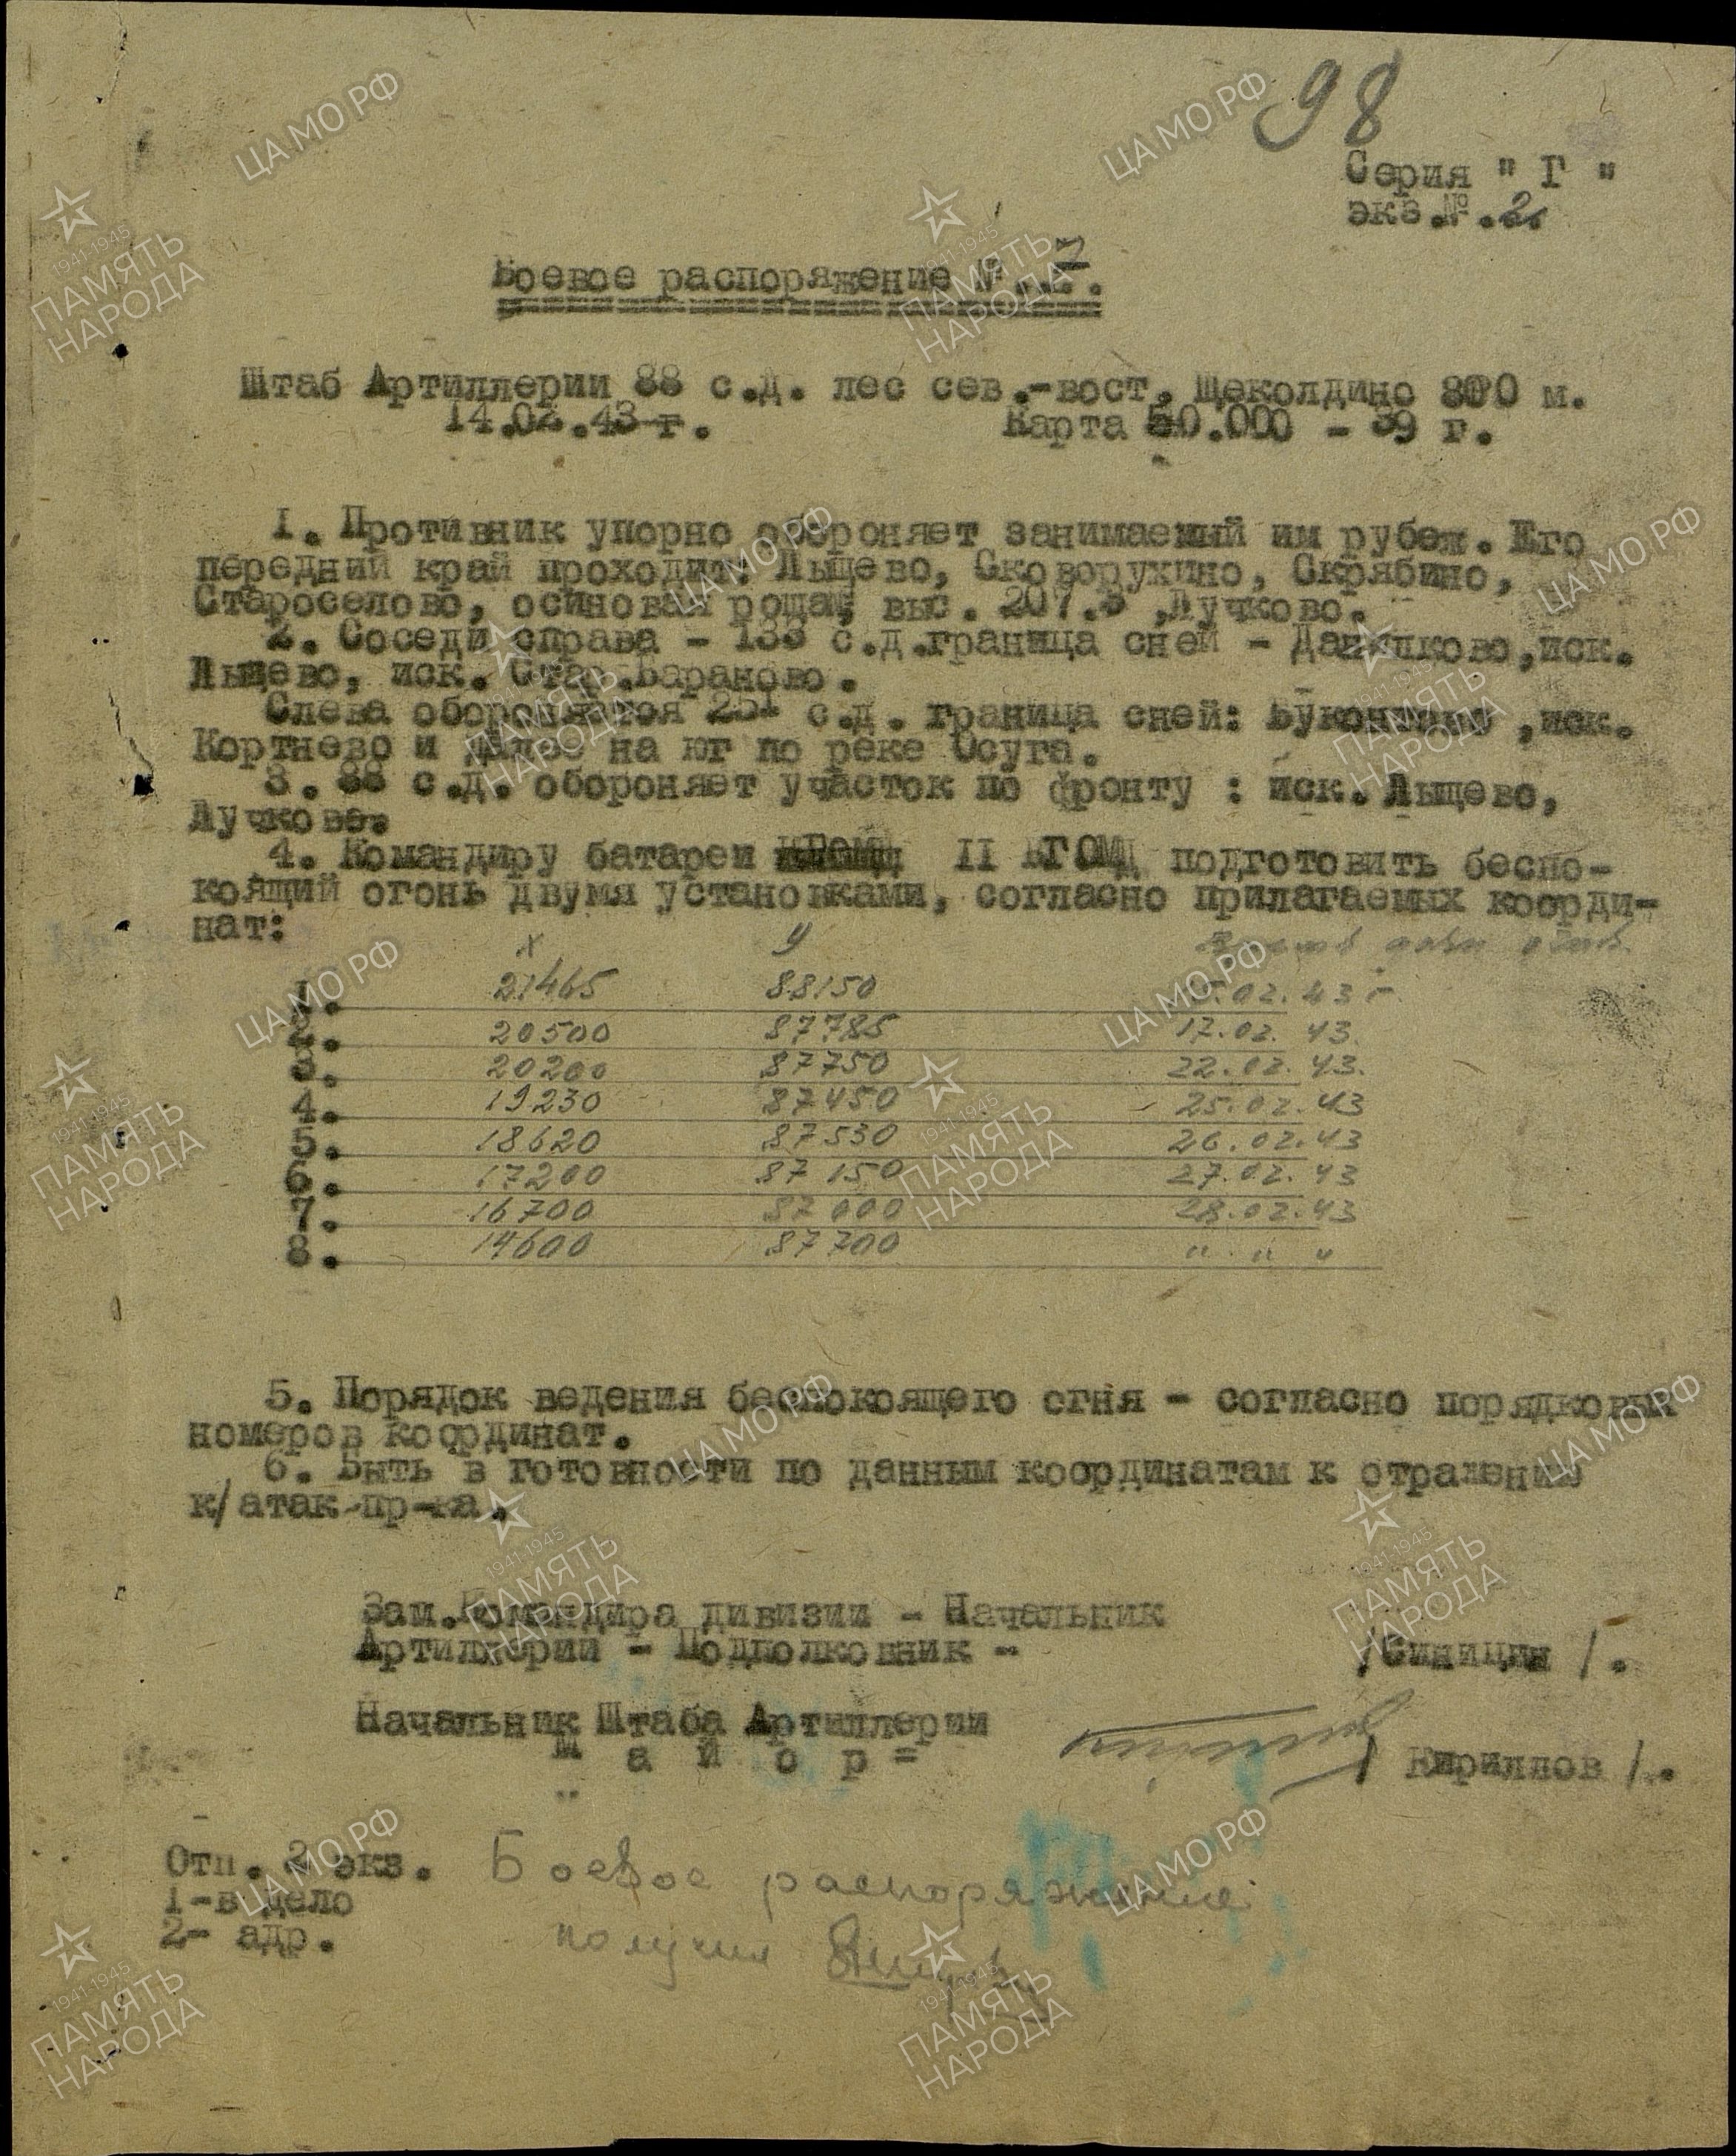 98
Серия " Г "
экз.№.2.
Боевое распоряжение № 7.
Штаб Артиллерии 88 с.д. лес сев.-вост. Щеколдино 800 м.
14.02.43 г. Карта 50.000 - 39 г.
1. Противник упорно обороняет занимаемый им рубеж. Его
передний край проходит: Лыщево, Сковорухино, Скрябино,
Староселово, осиновая роща, выс. 207.8 ,Лучково.
2. Соседи справа - 133 с.д.граница сней - Данилково,иск.
Лыщево, иск. Стар.Бараново.
Слева обороняется 251 с.д. граница сней: ,иск.
Кортнево и далее на юг по реке Осуга.
3. 88 с.д. обороняет участок по фронту : иск. Лыщево,
Лучково.
4. Командиру батареи II ВГОМД подготовить беспо-
коящий огонь двумя установками, согласно прилагаемых коорди-
нат:
х у
1. 21465 88150 .02.43 г
2. 20500 87785 17.02.43.
3. 20200 87750 22.02.43.
4. 19230 87450 25.02.43
5. 18620 87530 26.02.43
6. 17200 87150 27.02.43
7. 16700 87000 28.02.43
8. 14600 87700 " " "
5. Порядок ведения беспокоящего огня - согласно порядковых
номеров координат.
6. Быть в готовности по данным координатам к отражению
к/атак пр-ка.
Зам.Командира дивизии - Начальник
Артиллерии - Подполковник - /Синицин /.
Начальник Штаба Артиллерии
М а й о р = / Кириллов /.
Отп. 2 экз. Боевое распоряжение
1-в дело
2- адр. получил
ЦАМО РФ
1941-1945
ПАМЯТЬ
НАРОДА